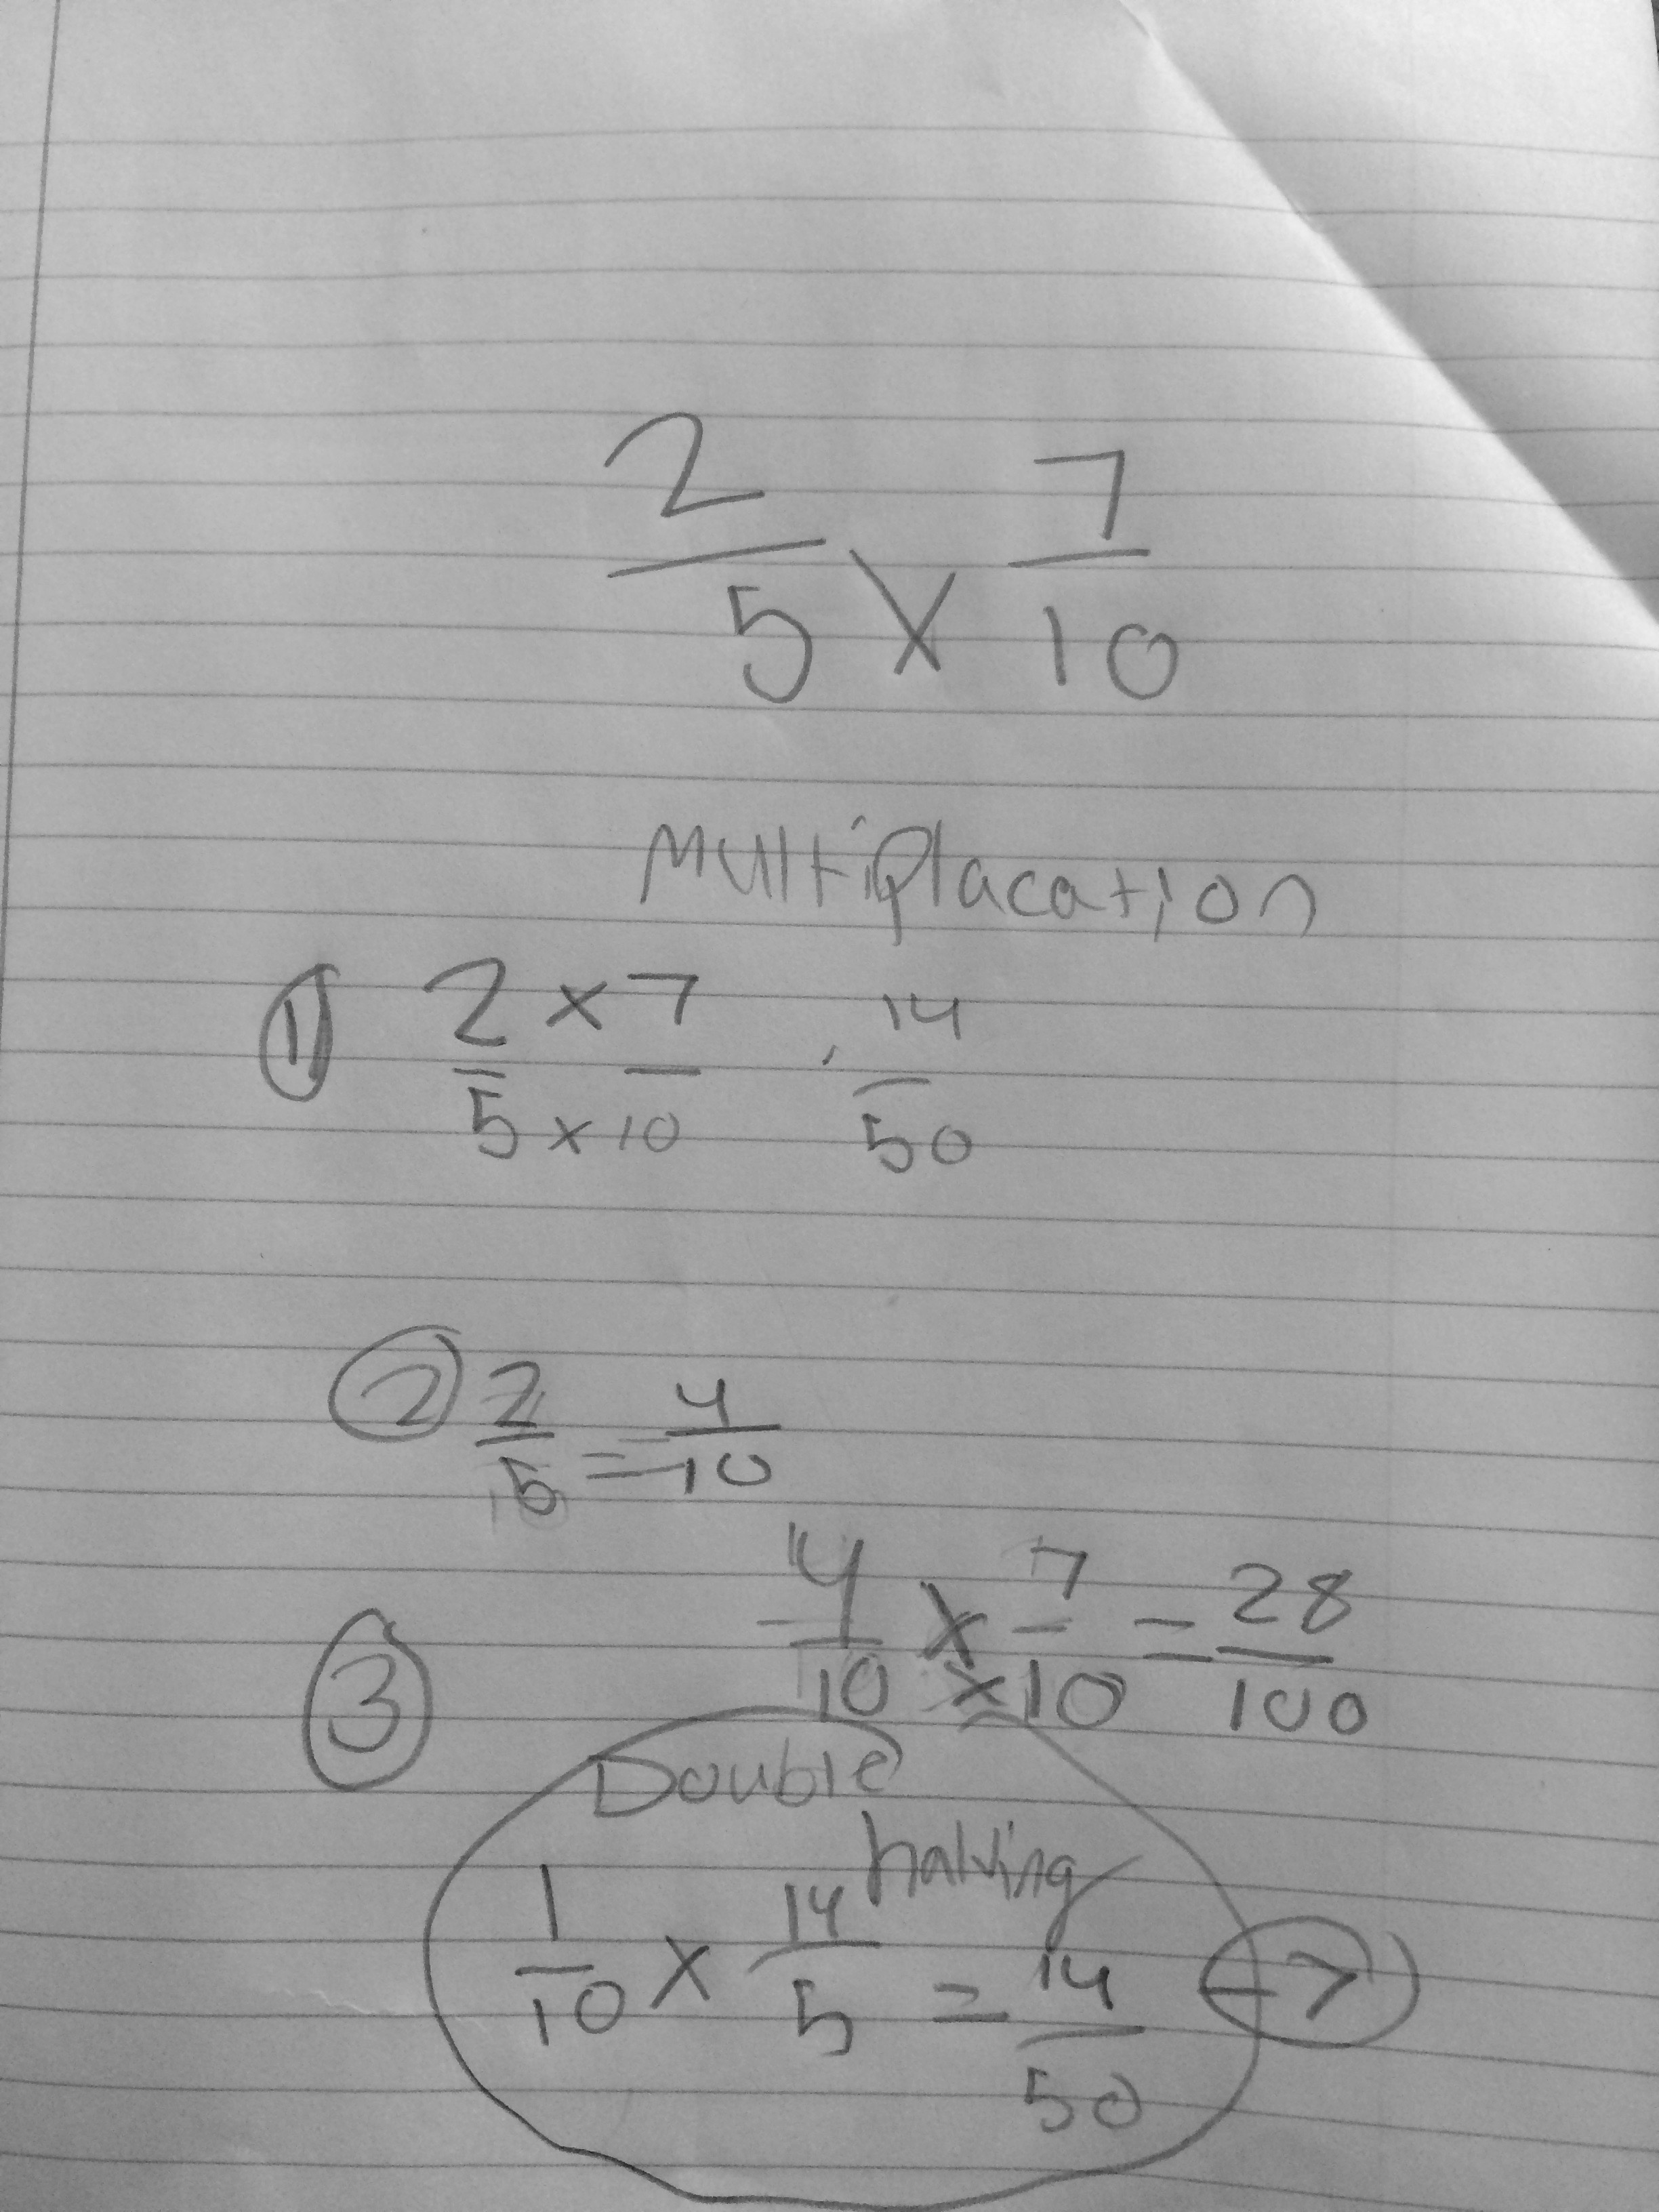 2/5 × 7/10
Multiplacation
① 2/5 × 7/10 14/50
② 2/5 = 4/10
4/10 × 7/10 = 28/100
③
Double
halving
1/10 × 14/5 = 14/50 →